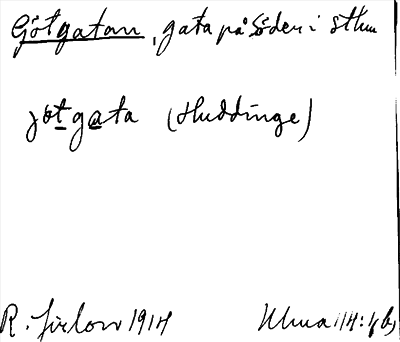 Götgatan, gata på Söder i Sthm
jötgata (Huddinge)
R. Jirlow 1914